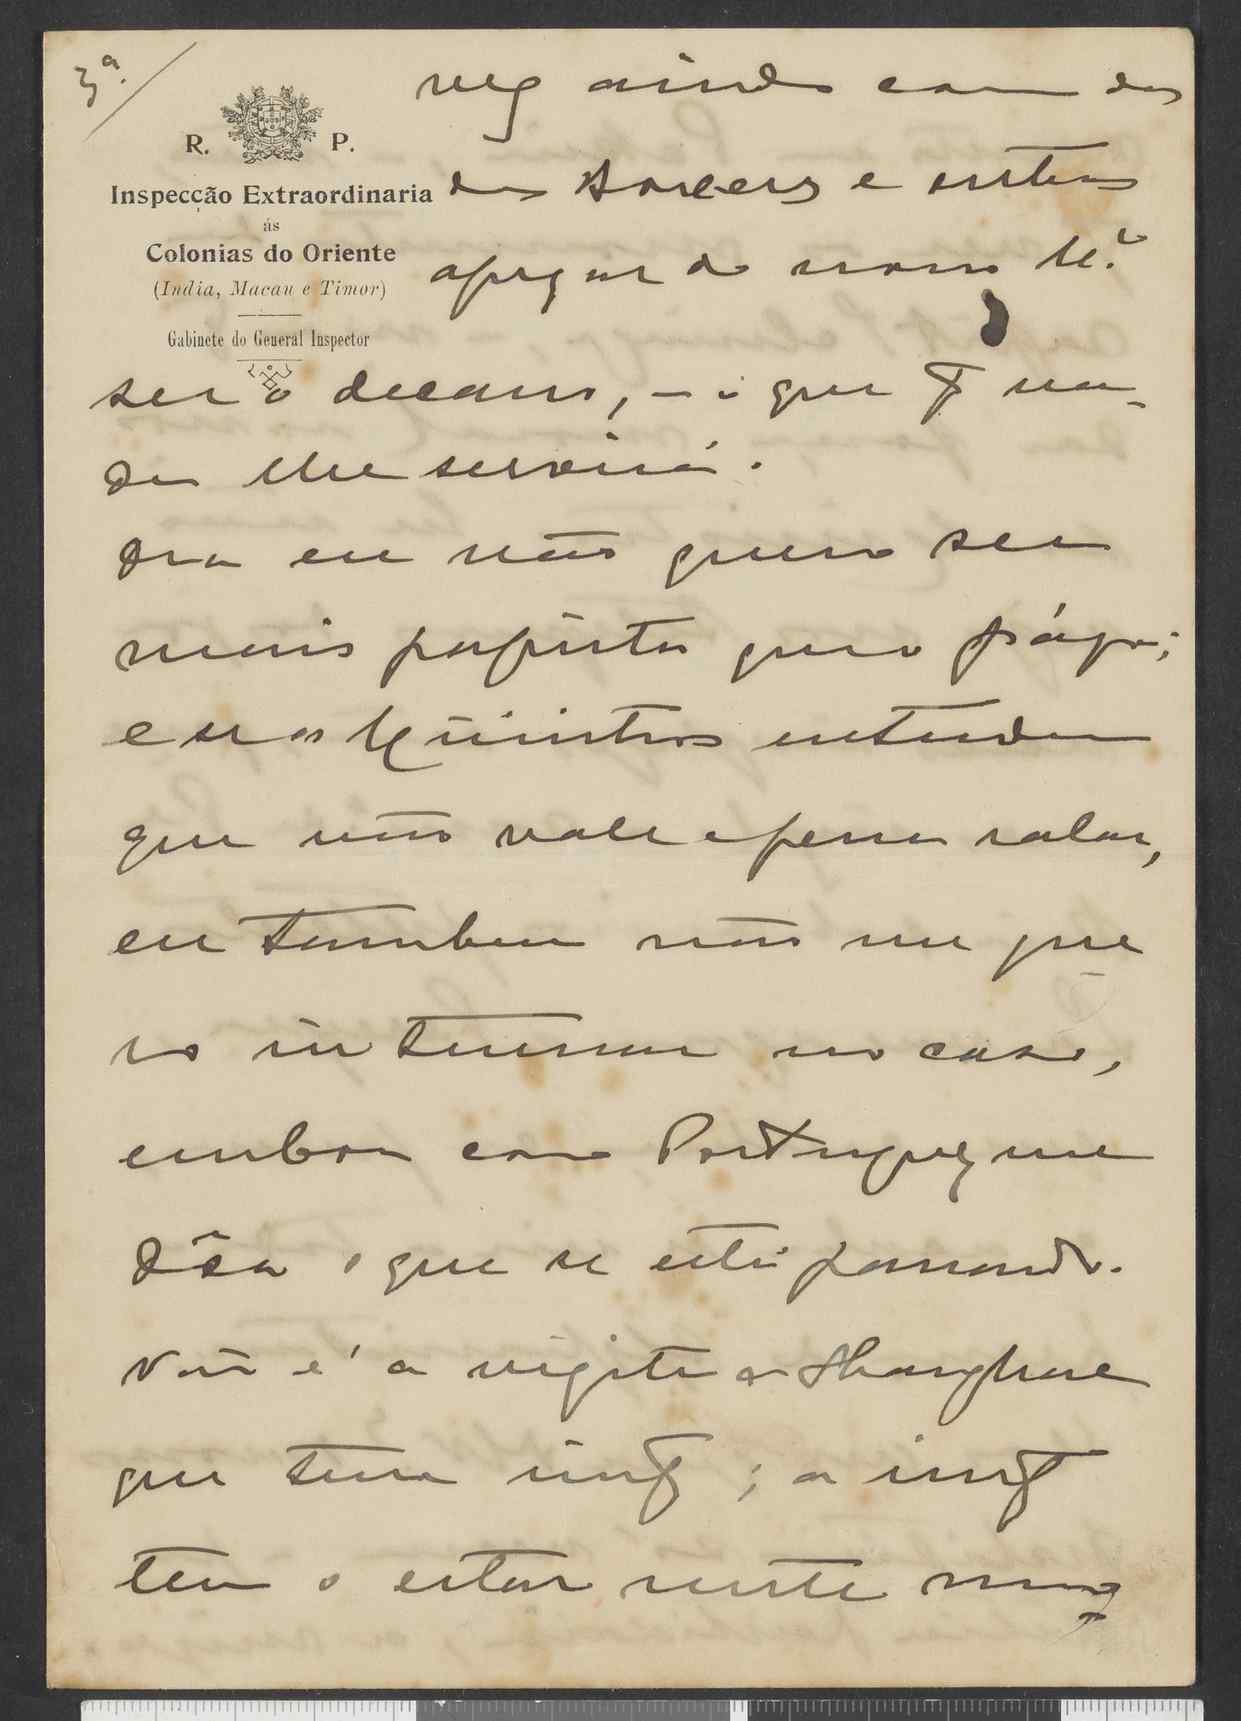 3ª/
R. P.
Inspecção Extraordinaria
ás
Colonias do Oriente
(India, Macau e Timor)
Gabinete do General Inspector
vez ainda com
e outros
apezar do nosso
ser o decano, - que na-
da lhe servirá.
Ora eu não quero ser
mais papista que o Pápa;
e se os Ministros entendem
que não vale a pena ralar,
eu tambem não me que
ro internar no caso,
embora como Portuguez me
dôa o que se está passando.
Vou é a vizita a Shanghae
que tem ; a
tem o estar neste